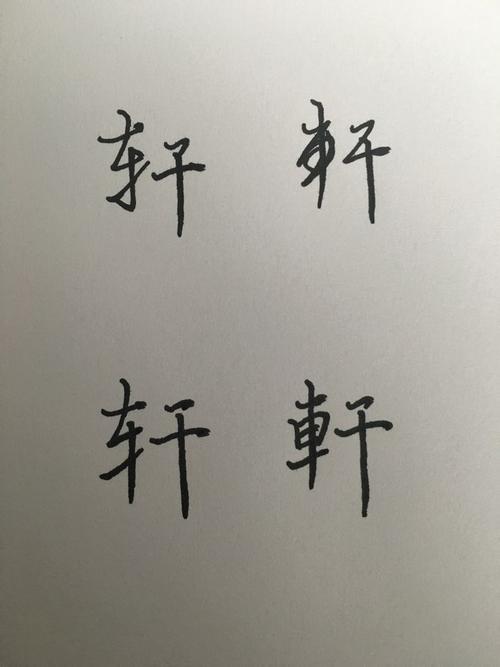 轩 軒
轩 軒